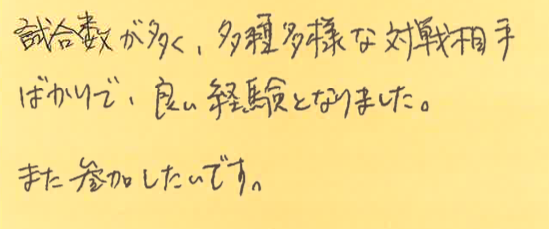 試合数が多く、多種多様な対戦相手
ばかりで、良い経験となりました。
また参加したいです。